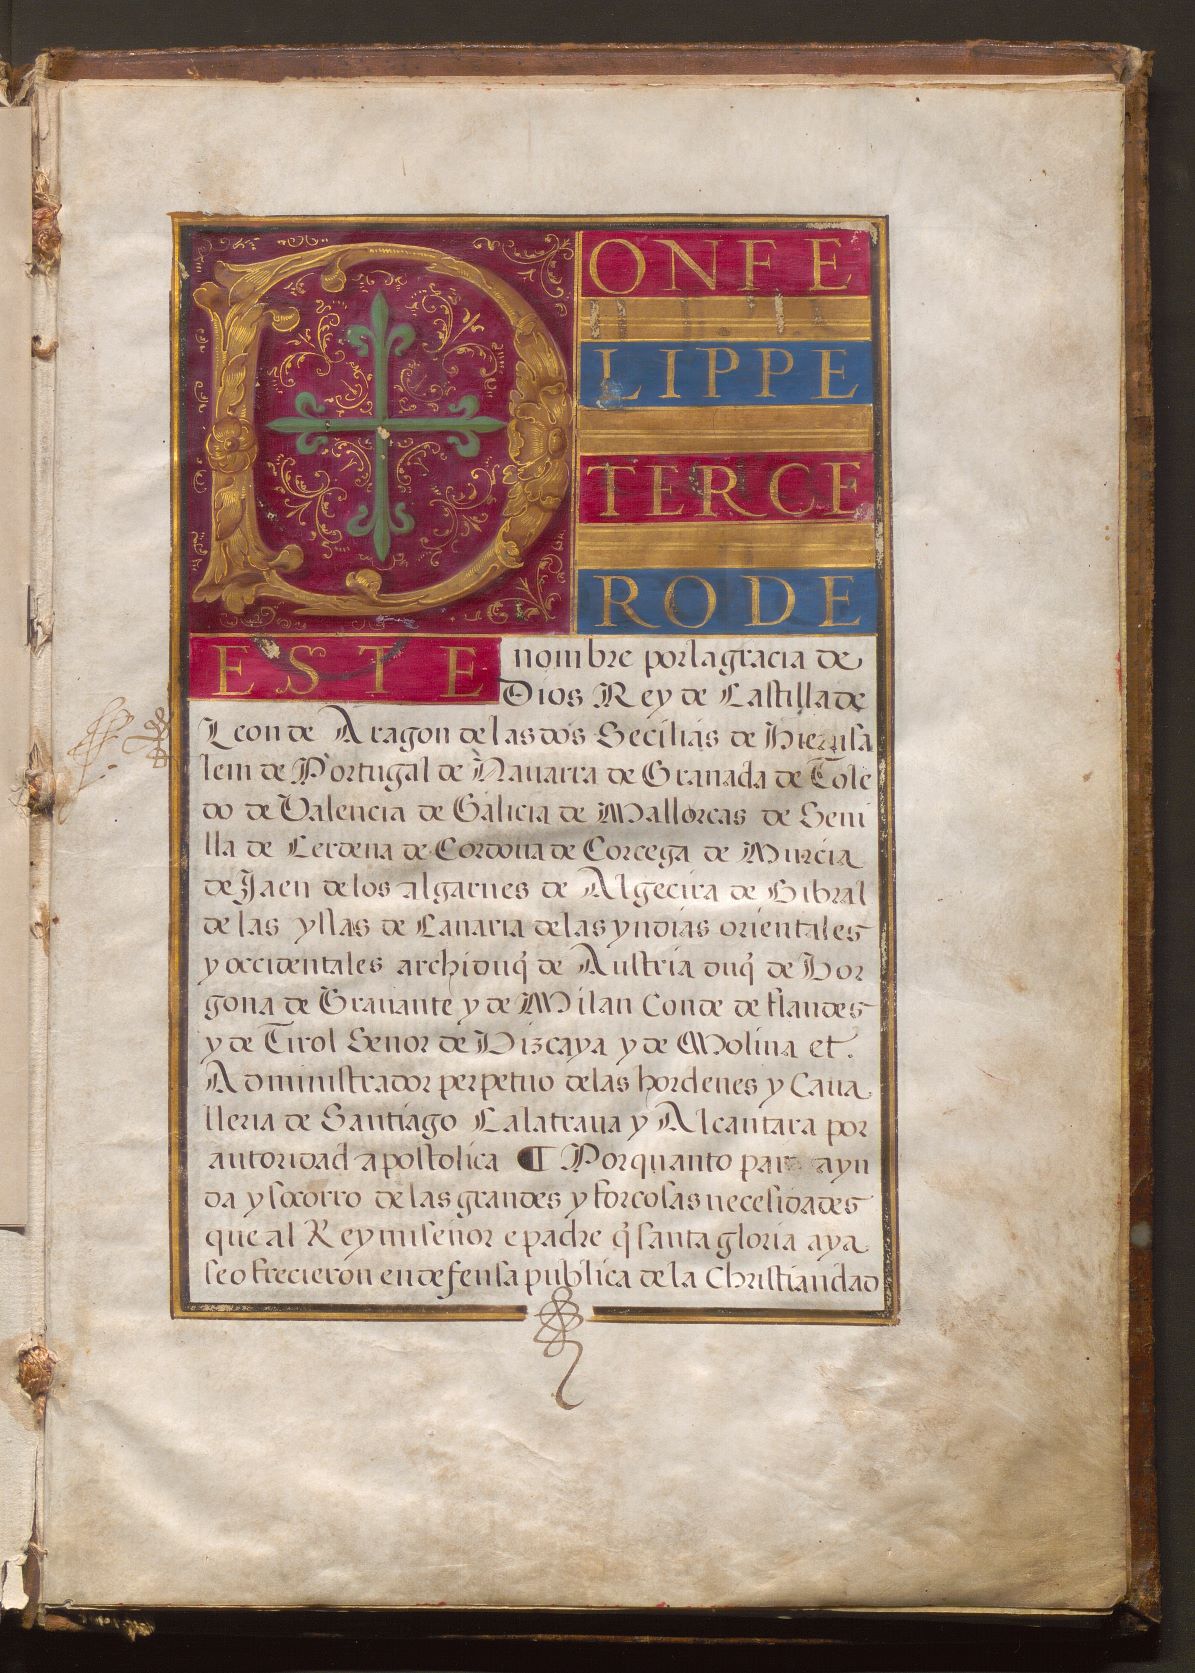 DONFE
LIPPE
TERCE
RODE
ESTE nombre por la gracia de
Dios Rey de Castilla de
Leon de Aragon de las dos Secilias de Hierusa
lem de Portugal de Nauarra de Granada de Tole
do de Valencia de Galicia de Mallorcas de Seui
lla de Cerdena de Cordoua de Corcega de Murcia
de Jaen de los algarues de Algecira de Gibral
de las yslas de Canaria de las yndias orientales
y occidentales archiduq̃ de Austria duq̃ de Bor
gona de Brauante y de Milan Conde de flandes
y de Tirol Senor de Vizcaya y de Molina et.
Administrador perpetuo de las hordenes y Caua
lleria de Santiago Calatraua y Alcantara por
autoridad apostolica ¶ Por quanto para ayu
da y socorro de las grandes y forcosas necesidades
que al Rey mi señor e padre q̃ santa gloria aya
se ofrecieron en defensa publica de la Christiandad